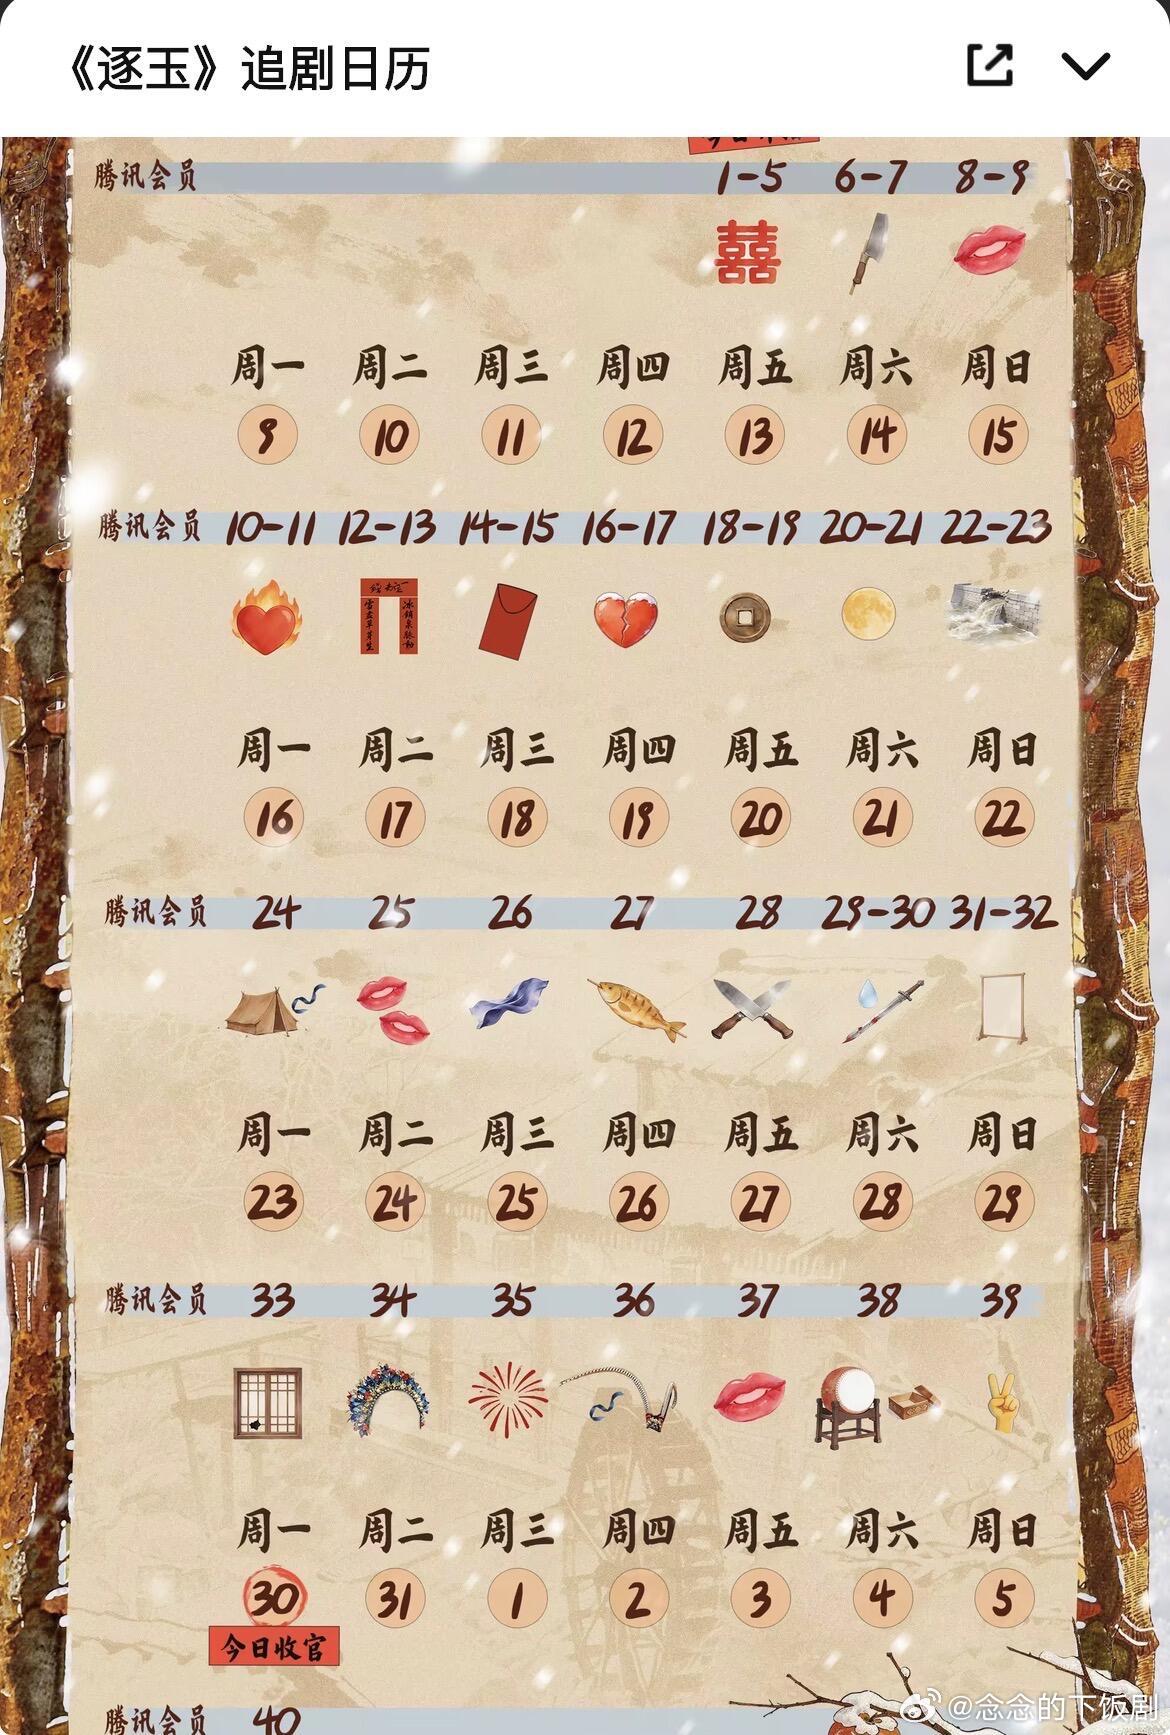 《逐玉》追剧日历
腾讯会员 1-5 6-7 8-9
囍
周一 周二 周三 周四 周五 周六 周日
9 10 11 12 13 14 15
腾讯会员 10-11 12-13 14-15 16-17 18-19 20-21 22-23
周一 周二 周三 周四 周五 周六 周日
16 17 18 19 20 21 22
腾讯会员 24 25 26 27 28 29-30 31-32
周一 周二 周三 周四 周五 周六 周日
23 24 25 26 27 28 29
腾讯会员 33 34 35 36 37 38 39
周一 周二 周三 周四 周五 周六 周日
30 31 1 2 3 4 5
今日收官
腾讯会员 40
@念念的下饭剧